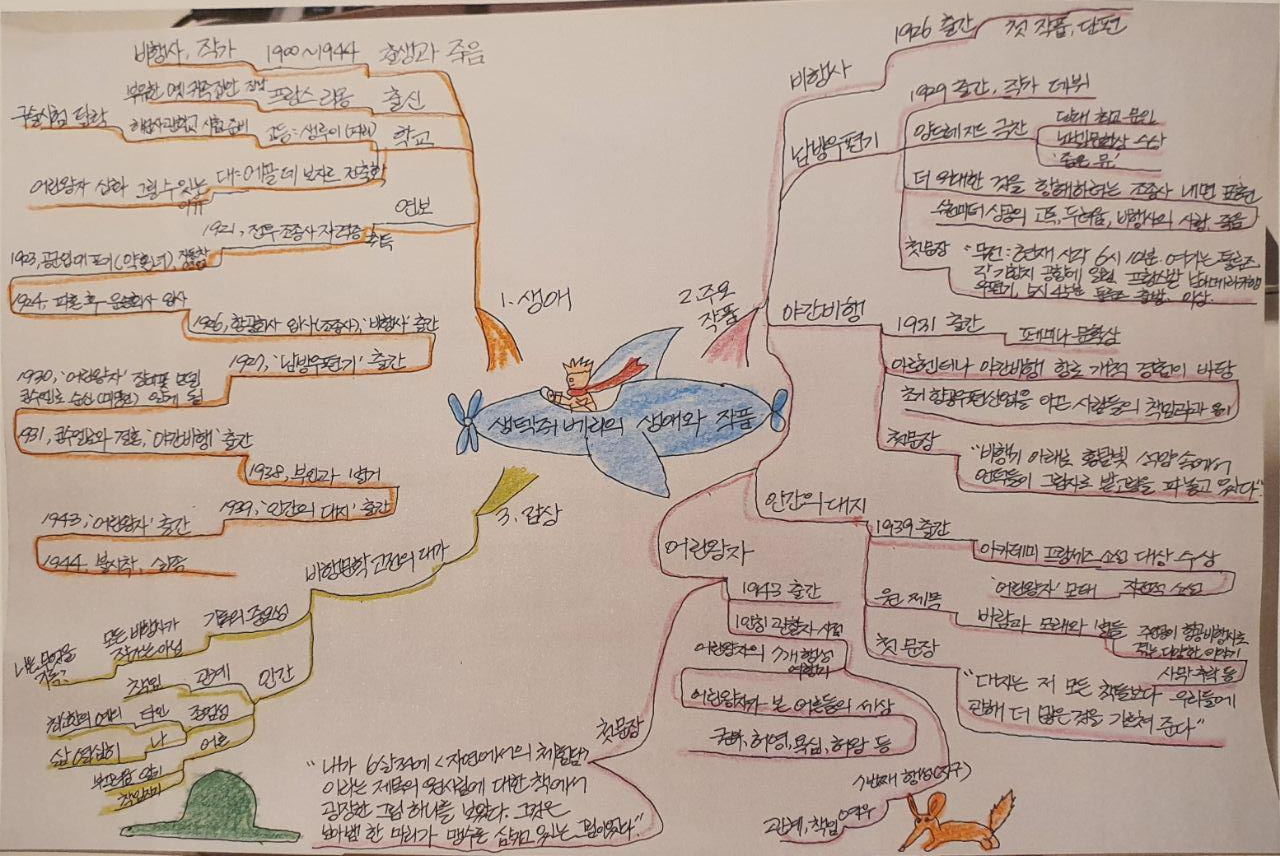 생텍쥐베리의 생애와 작품
1. 생애
출생과 죽음
1900~1944
비행사, 작가
출신
프랑스 리옹
부유한 옛 귀족집안 장남
학교
고등: 생루이 (파리)
해군사관학교 시험 준비
구술시험 탈락
대: 에꼴 데 보자르 건축학
어린왕자 삽화 그릴 수 있는
이유
연보
1921, 전투 조종사 자격증
취득
1924, 파혼 후 운송회사 입사
1926, 항공회사 입사(조종사), '비행사' 출간
1927, '남방우편기' 출간
1930, '어린왕자' 장미꽃 모델
1931, 콘수엘로와 결혼, '야간비행' 출간
1938, 부인과 별거
1939, '인간의 대지' 출간
1943, '어린왕자' 출간
1944. 불시착, 실종
2. 주요
작품
비행사
1926 출간
첫 작품, 단편
남방우편기
1929 출간, 작가 데뷔
앙드레지드 극찬
당대 최고 문인
'좁은 문'
더 위대한 것을 향해하는 조종사 내면 표현
수천미터 상공의 고독, 두려움, 비행사의 사랑, 죽음
첫문장
"무전: 현재 시각 6시 10분. 여기는 툴루즈.
야간비행
1931 출간
페미나 문학상
아르헨티나 야간비행 항로 개척 경험이 바탕
초기 항공우편산업을 이끈 사람들의 책임감과 용기
첫문장
"비행기 아래로 황금빛 석양 속에서
언덕들이 그림자로 밭고랑을 파 놓고 있었다."
인간의 대지
1939 출간
아카데미 프랑세즈 소설 대상 수상
'어린왕자' 모태
자전적 소설
원 제목
바람과 모래와 별들
사막 추락 등
첫 문장
"대지는 저 모든 책들보다 우리들에
관해 더 많은 것을 가르쳐 준다"
어린왕자
1943 출간
어린왕자의 7개 행성
여행기
어린왕자가 본 어른들의 세상
권력, 허영, 욕심, 허황 등
7번째 행성(지구)
여우
관계, 책임
첫문장
"내가 6살 적에 <자연에서의 체험담>
이라는 제목의 원시림에 대한 책에서
굉장한 그림 하나를 보았다. 그것은
보아뱀 한 마리가 맹수를 삼키고 있는 그림이었다."
3. 감상
비행문학 고전의 대가
기록의 중요성
모든 비행사가
작가는 아님
나는 무엇을
인간
관계
책임
존엄성
타인
나
삶 열심히
어른